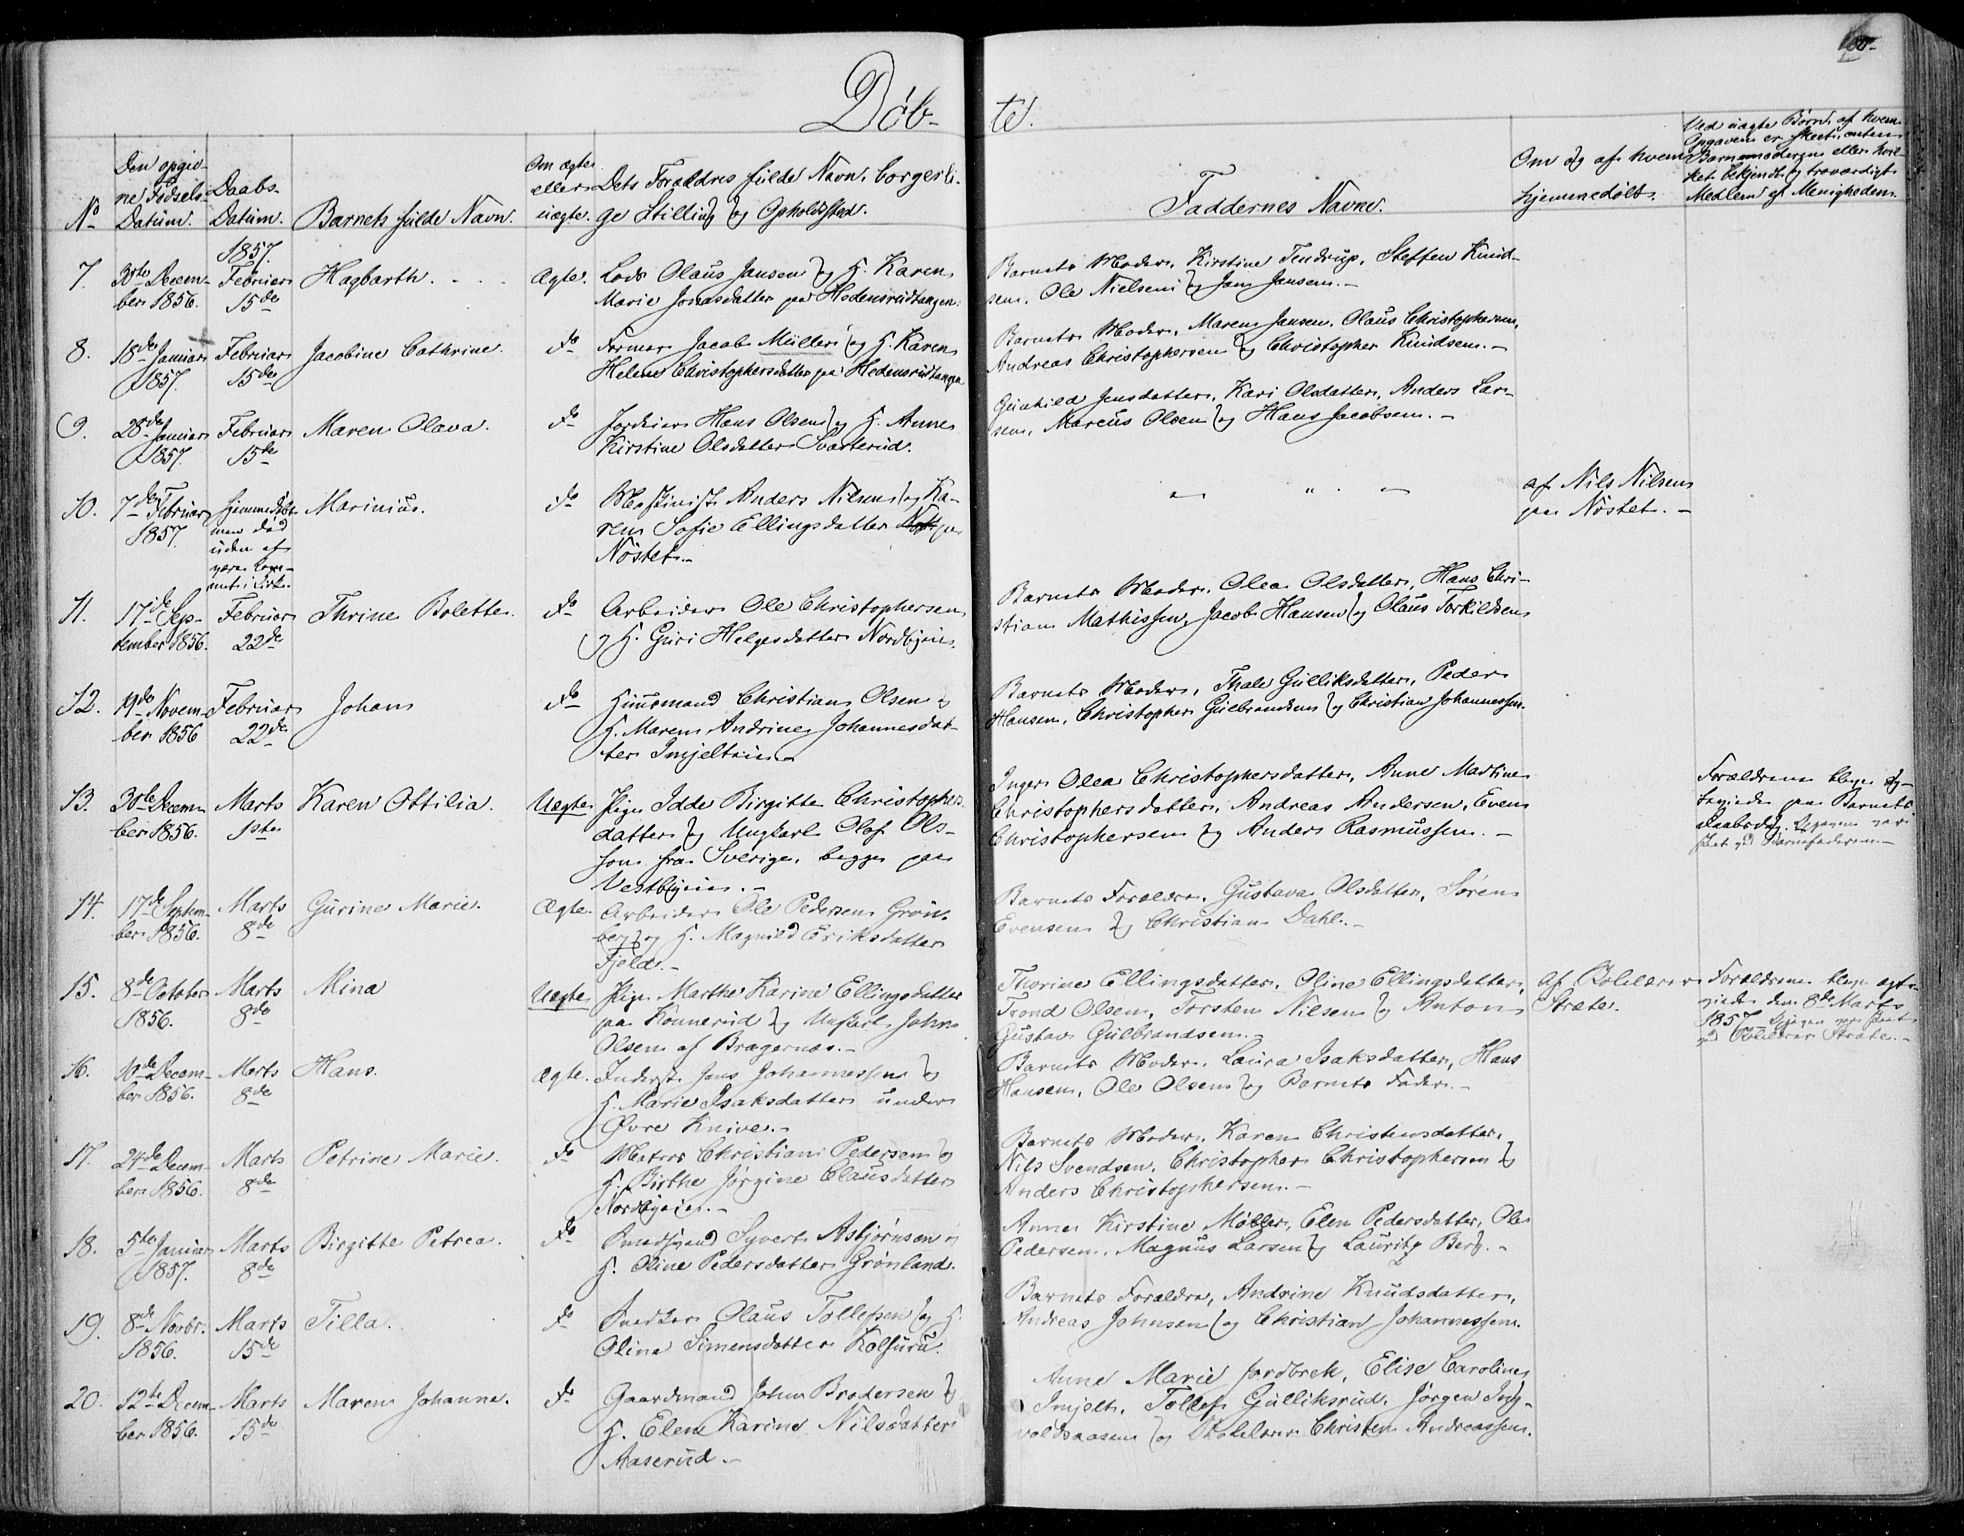 Døb-
te.
No
Den opgiv-
ne Fødsels-
Datum.
Daabs-
Datum.
Barnets fulde Navn.
Om ægte
eller
uægte.
Dets Forældres fulde Navn, borgerli-
ge Stilling og Opholdssted.
Faddernes Navne.
Om og af hvem
hjemmedøbt.
Ved uægte Børn, af hvem
Opgaven er skeet, enten
Barnemoderen eller hvil-
ket bekjendt og troværdigt
Medlem af Menigheden.
1857.
7.
30te Decem-
ber 1856.
Februar
15de
Hagbarth.
Ægte.
Lods Olaus Jansen og H. Karen
Marie Jonasdatter paa Hedensrudtangen.
Barnets Moder, Kirstine Tendrup, Steffen Knud-
sen, Ole Nielsen og Jan Jansen.-
8.
18de Januar
1857.
Februar
15de
Jacobine Cathrine.
do
Former Jacob Müller og H. Karen
Helene Christophersdatter paa Hedensrudtangen
Barnets Moder, Maren Jansen, Olaus Christophersen,
Andreas Christophersen og Christopher Knudsen.-
9.
28de Januar
1857.
Februar
15de
Maren Olava.
do
Jordeier Hans Olsen og H. Anne
Kirstine Olsdatter Svarterud.
Gunhild Jensdatter, Kari Olsdatter, Anders Lar-
sen, Marcus Olsen og Hans Jacobsen.-
10.
7de Februar
1857.
Hjemmedøbt
men død
uden at
være kom-
met i Kirke.
Marinius.
do
Maskinist Anders Nilsen og Ka-
ren Sofie Ellingsdatter paa
Nöstet.-
- " -
af Nils Nilsen
paa Nöstet.-
11.
17de Sep-
tember 1856.
Februar
22de
Thrine Bolette.
do
Arbeider Ole Christophersen
og H. Guri Helgesdatter Nordbyeie.
Barnets Moder, Olea Olsdatter, Hans Chri-
stian Mathissen, Jacob Hansen og Olaus Torkildsen
12.
19de Novem-
ber 1856
Februar
22de
Johan
do
Huusmand Christian Olsen og
H. Maren Andrine Johannesdat-
ter Imjelteie.
Barnets Moder, Thale Gulliksdatter, Peder
Hansen, Christopher Gulbrandsen og Christian Johannessen.
13.
30te Decem-
ber 1856.
Marts
1ste
Karen Ottilia.
Uægte
Pige Idde Birgitte Christophers-
datter og Ungkarl Olof Ols-
son fra Sverige, begge paa
Vestbyeie.-
Inger Olea Christophersdatter, Anne Martine
Christophersdatter, Andreas Andersen, Even
Christophersen og Anders Rasmussen.-
Forældrene bleve æg-
teviede paa Barnets
Daabsdag. Opgaven var
skeet ved Barnefaderen.-
14.
17de Septem-
ber 1856.
Marts
8de
Gurine Marie.
Ægte.
Arbeider Ole Pedersen Grön-
berg og H. Magnild Eriksdatter
Fjeld.-
Barnets Forældre, Gustava Olsdatter, Søren
Evensen og Christian Dahl.-
15.
8de October
1856.
Marts
8de
Mina
Uægte
Pige Marthe Karine Ellingsdatter
paa Konnerud og Ungkarl John
Olsen af Bragernæs.-
Thorine Ellingsdatter, Oline Ellingsdatter,
Trond Olsen, Torsten Nilsen og Anton
Gustav Gulbrandsen.-
af Skolelærer
Stræte.
Forældrene bleve ægte-
viede den 8de Marts
1857. Opgaven var skeet
ved Skolelærer Stræte.-
16.
10de Decem-
ber 1856.
Marts
8de
Hans.
Ægte.
Inderst Jens Johannessen og
H. Marie Isaksdatter under
Øvre Knive.-
Barnets Moder, Laura Isaksdatter, Hans
Hansen, Ole Olsen og Barnets Fader.-
17.
24de Decem-
ber 1856.
Marts
8de
Petrine Marie.
do
Matros Christian Pedersen og
H. Birthe Jørgine Clausdatter
Nordbyeie.-
Barnets Moder, Karen Christensdatter,
Nils Svendsen, Christopher Christophersen og
Anders Christophersen.-
18.
5te Januar
1857.
Marts
8de
Birgitte Petrea.
do
Smedsvend Syvert Asbjørnsen og
H. Oline Pedersdatter Grønland.
Anne Kirstine Møller, Elen Pedersdatter, Ole
Pedersen, Magnus Larsen og Lauritz Berg.-
19.
8de Novbr.
1856.
Marts
15de
Tilla.
do
Snedker Olaus Tollefsen og H.
Olina Simensdatter Kolsuru.
Barnets Forældre, Andrine Knudsdatter,
Andreas Johnsen og Christian Johannessen.
20.
12te Decem-
ber 1856.
Marts
15de
Maren Johanne.
do
Gaardmand John Brodersen og
H. Elen Karine Nilsdatter
Aaserud.-
Anne Marie Jordbrek, Elise Caroline
Imjelt, Tollef Gulliksrud, Jörgen Ing-
voldsaasen og Skolelærer Christen Andreassen.